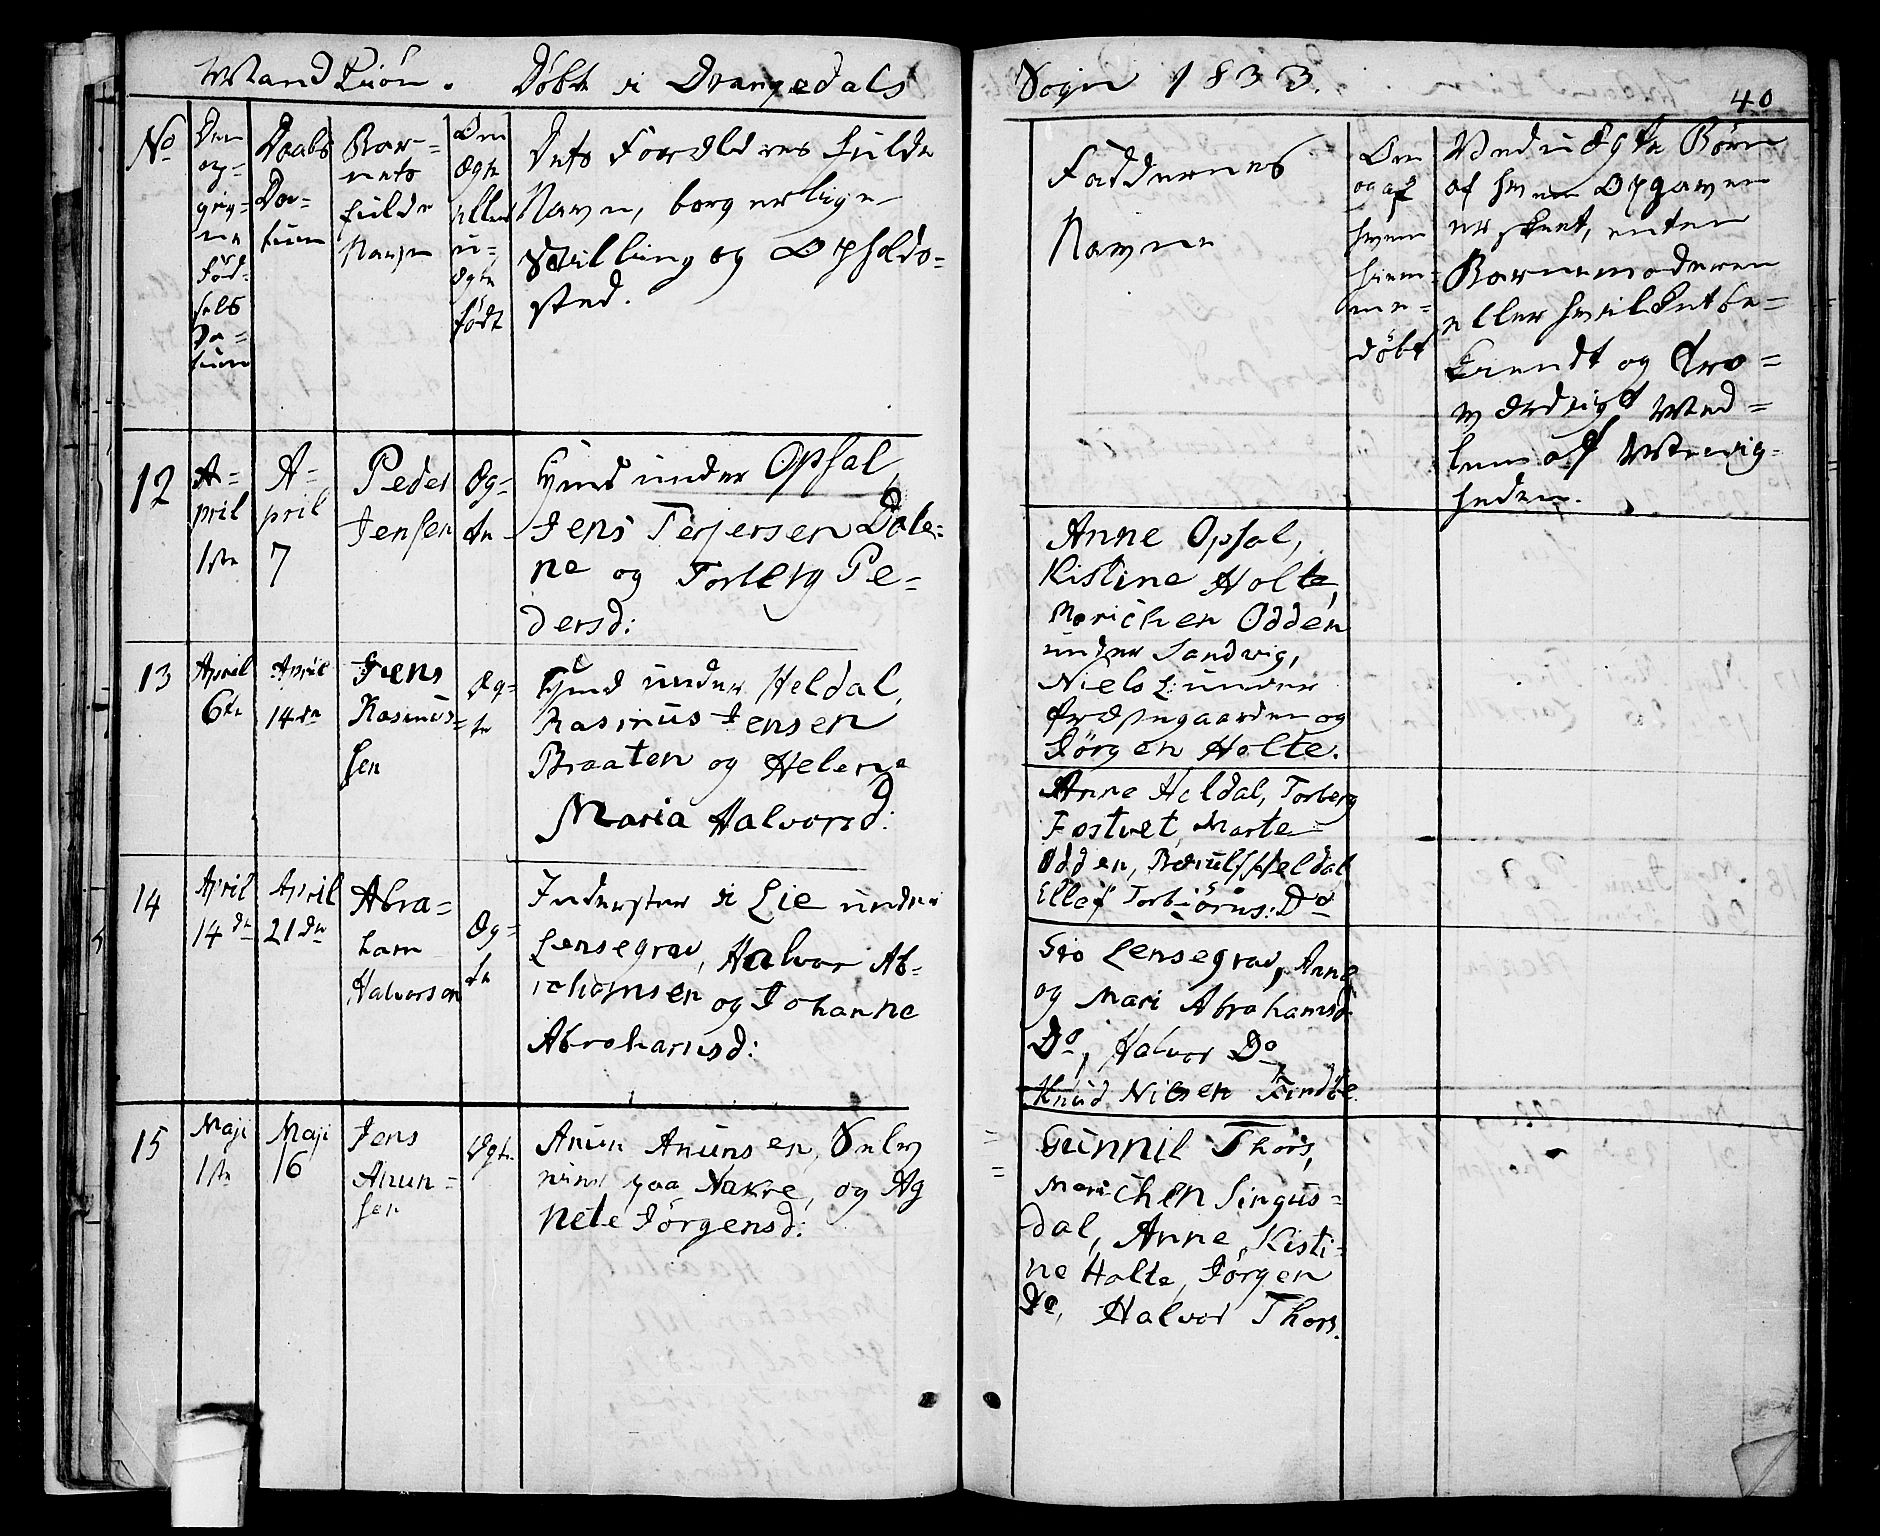 Mand Kiön. Döbt i Drangedals Sogn 1833.
40
No
Den
op-
giv-
ne
Föd-
sels
Da-
tum
Daabs
Da-
tum
Bar-
nets
fulde
Navn
Om
Ægte
eller
u-
ægte
födt
Dets Forældres fulde
Navn, borgerlige
Stilling og Opholds-
sted.
Faddernes
Navne
Om
og af
hvem
hiem-
me-
döbt
Ved uægte Børn
af hvem Opgaven
er skeet, enten
Barnemoderen
eller hvilket be-
kiendt og tro-
værdigt Med-
lem af Menig-
heden.
12
A-
pril
1ste
A-
pril
7
Peder
Jensen
Æg-
te
Huus under Opsal
Jens Terjersen Dale-
ne og Torberg Pe-
dersd:
Anne Opsal,
Kistine Holte,
Marichen Odden
under Sandvig,
Niels under
Præstegaarden og
Jörgen Holte.
13
April
6te
April
14de
Jens
Rasmus-
sen
Æg-
te
Huus under Heldal,
Rasmus Jensen
Braaten og Helene
Maria Halvorsd:
Anne Heldal, Torberg
Tostvet, Marte
Odden, Bærulf Heldal
Ellef Torbiörns: Do
14
April
14de
April
21de
Abra-
ham
Halvorsen
Æg-
te
Inderster i Lie under
Lensegrav, Halvor Ab-
rahamsen og Johanne
Abrahamsd:
Gro Lensegrav, Anne
og Mari Abrahamsd
Do, Halvor Do,
Knud Nilsen Tindbe
15
Maji
1ste
Maji
16
Jens
Anun-
sen
Ægte
Anun Anunsen, Selv
eier paa Nakre, og Ag
nete Jörgensd:
Gunnil Thors,
Marichen Singus-
dal, Anne Kisti-
ne Holte, Jörgen
Do, Halvor Thors.